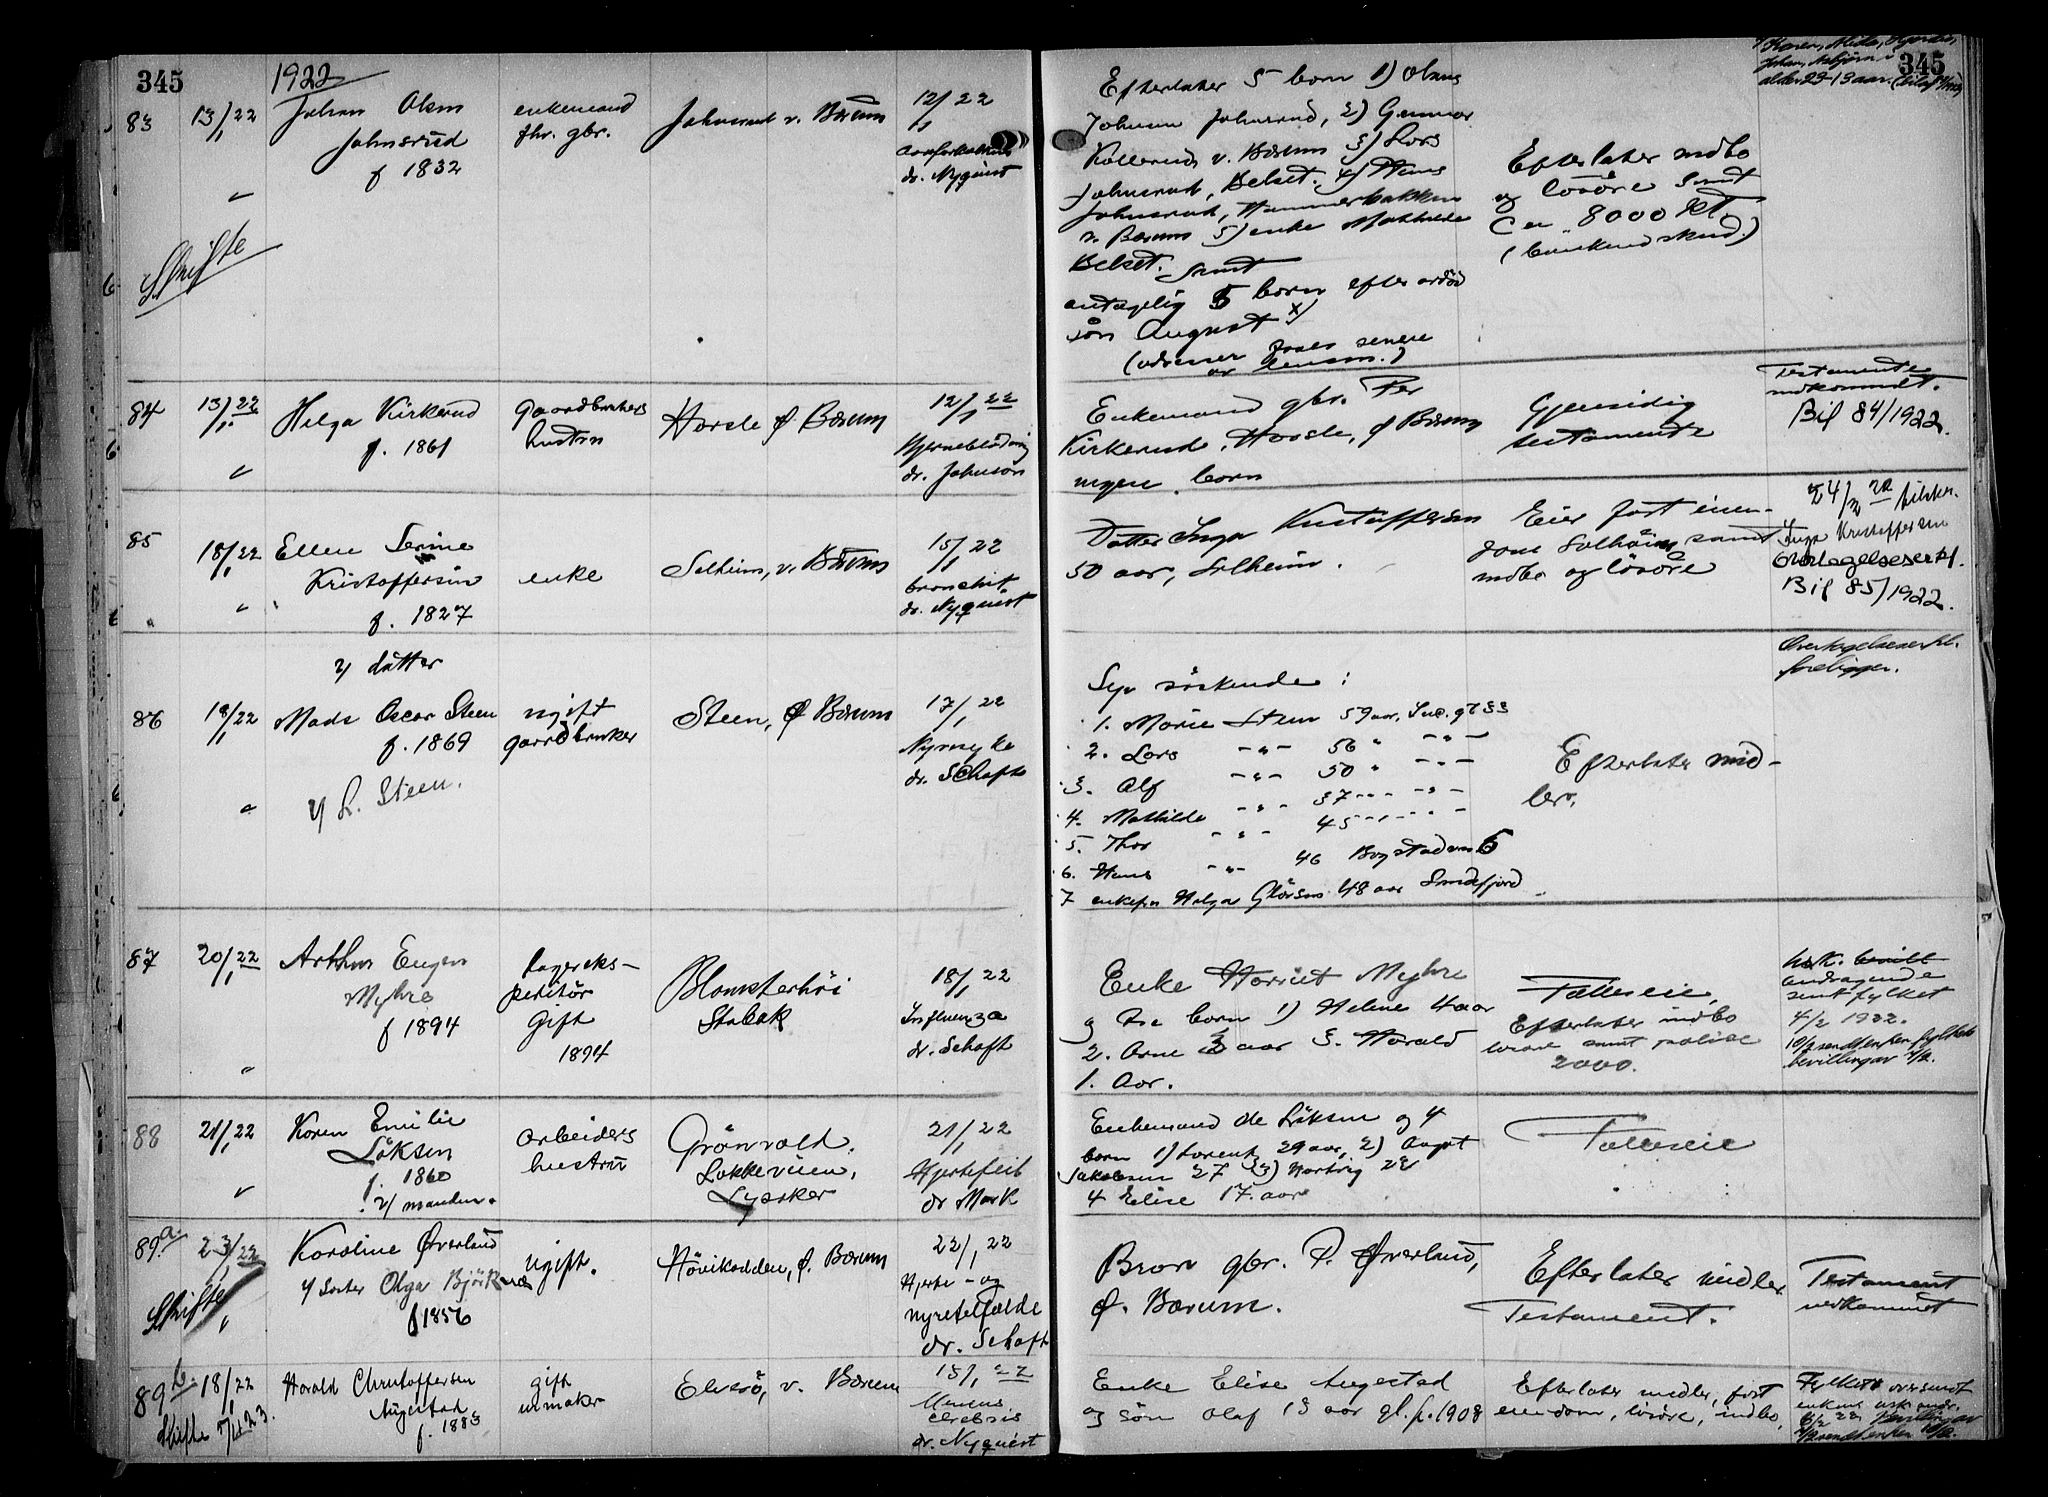 345
1922
83
13/1 22
Johan Olsen
Johnsrud
f 1832
enkemand
fhr. gbr.
Johnsrud v. Bærum
12/1 22
dr. Nyquist
Skifte
Efterlater 5 born 1)
Johnsen Johnsrud, 2) Gunnar
Kollerud v. Bærum 3) Lars
Johnsrud, Belset. 4) Hans
Johnsrud, Hammerbakken
v. Bærum 5) enke Mathilde
Belset. samt
antagelig 5 born efter avdød
søn August x)
(adresser faaes senere
av lensm.)
Efterlater indbo
og løsøre samt
Ca 8000 kr.
345
84
13/1 22
Helga Kirkerud
f. 1861
Gaardbrukers
hustru
Hosle Ø Bærum
12/1 22
Hjerneblødning
dr. Johnson
Enkemand gbr. Per
Kirkerud, Hosle, Ø Bærum
ingen born
Gjensidig
testamente
Testamente
indkommet.
Bil 84/1922.
85
18/1 22
Ellen Serine
Kristoffersen
f. 1827
v/ datter
enke
Solheim, v. Bærum
15/1 22
bronchit
dr. Nyquist
Datter Inga Kristoffersen
50 aar, Solheim.
Eier fast eien-
dom Solheim samt
indbo og løsøre
24/2 22
Inga Kristoffersen
Overtagelseserkl.
Bil 85/1922.
86
19/1 22
Mads Oscar Steen
f. 1869
v/ L. Steen.
ugift
gaardbruker
Steen, Ø Bærum
17/1 22
Nyresyke
dr. Schaft
Syv søskende:
1. Marie Steen 59 aar,
2. Lars -"- 56 "
3. Alf -"- 50 "
4. Mathilde -"- 37
5. Thor -"- 45
6. Hans -"- 46 Bogstadvn 6
7 enkefru Helga 48 aar Sandefjord
Efterlater mid-
ler.
Overtagelseserkl.
foreligger.
87
20/1 22
Arthur Eugen
Myhre
f 1894
lagereks-
peditør
Gift
1894
Blomsterhøi
Stabæk
18/1 22
Influenza
dr. Schaft
Enke Harriet Myhre
og tre born 1) Helene 4 aar
2. Arne 3 aar 3. Harald
1. Aar.
Fælleseie,
Efterlater indbo
løsøre samt polise
2000.
andragende
sendt fylket
4/2 1922.
88
21/1 22
Karen Emilie
Løksen
f. 1860
v/ manden.
arbeiders
hustru
Grönvold,
Løkkeveien,
Lysaker
21/1 22
Hjertefeil
dr Mork
Enkemand Ole Løksen og 4
born 1) Laurentz 29 aar, 2) August
Jakobsen 27 3) Hartvig 22
4 Elise 17. aar
Fælleseie
89 a.
23/1 22
Karoline Øverland
v/ søster Olga Bjørknes
f 1856
Skifte
ugift.
Høvikodden, Ø. Bærum
22/1 22
Hjerte- og
nyretilfælde
dr. Schaft
Bror gbr. P. Øverland,
Ø. Bærum.
Efterlater midler
Testament.
Testament
indkommet
89 b.
18/1 22
Skifte
Harald Christoffersen
Augestad
f. 1883
gift
urmaker
Elvesø, v. Bærum
15/1 22
dr. Nyquist
Enke Elise Augestad
og søn Olaf 13 aar gl. f. 1908
Efterlater midler, fast
eiendom, løsøre, indbo,